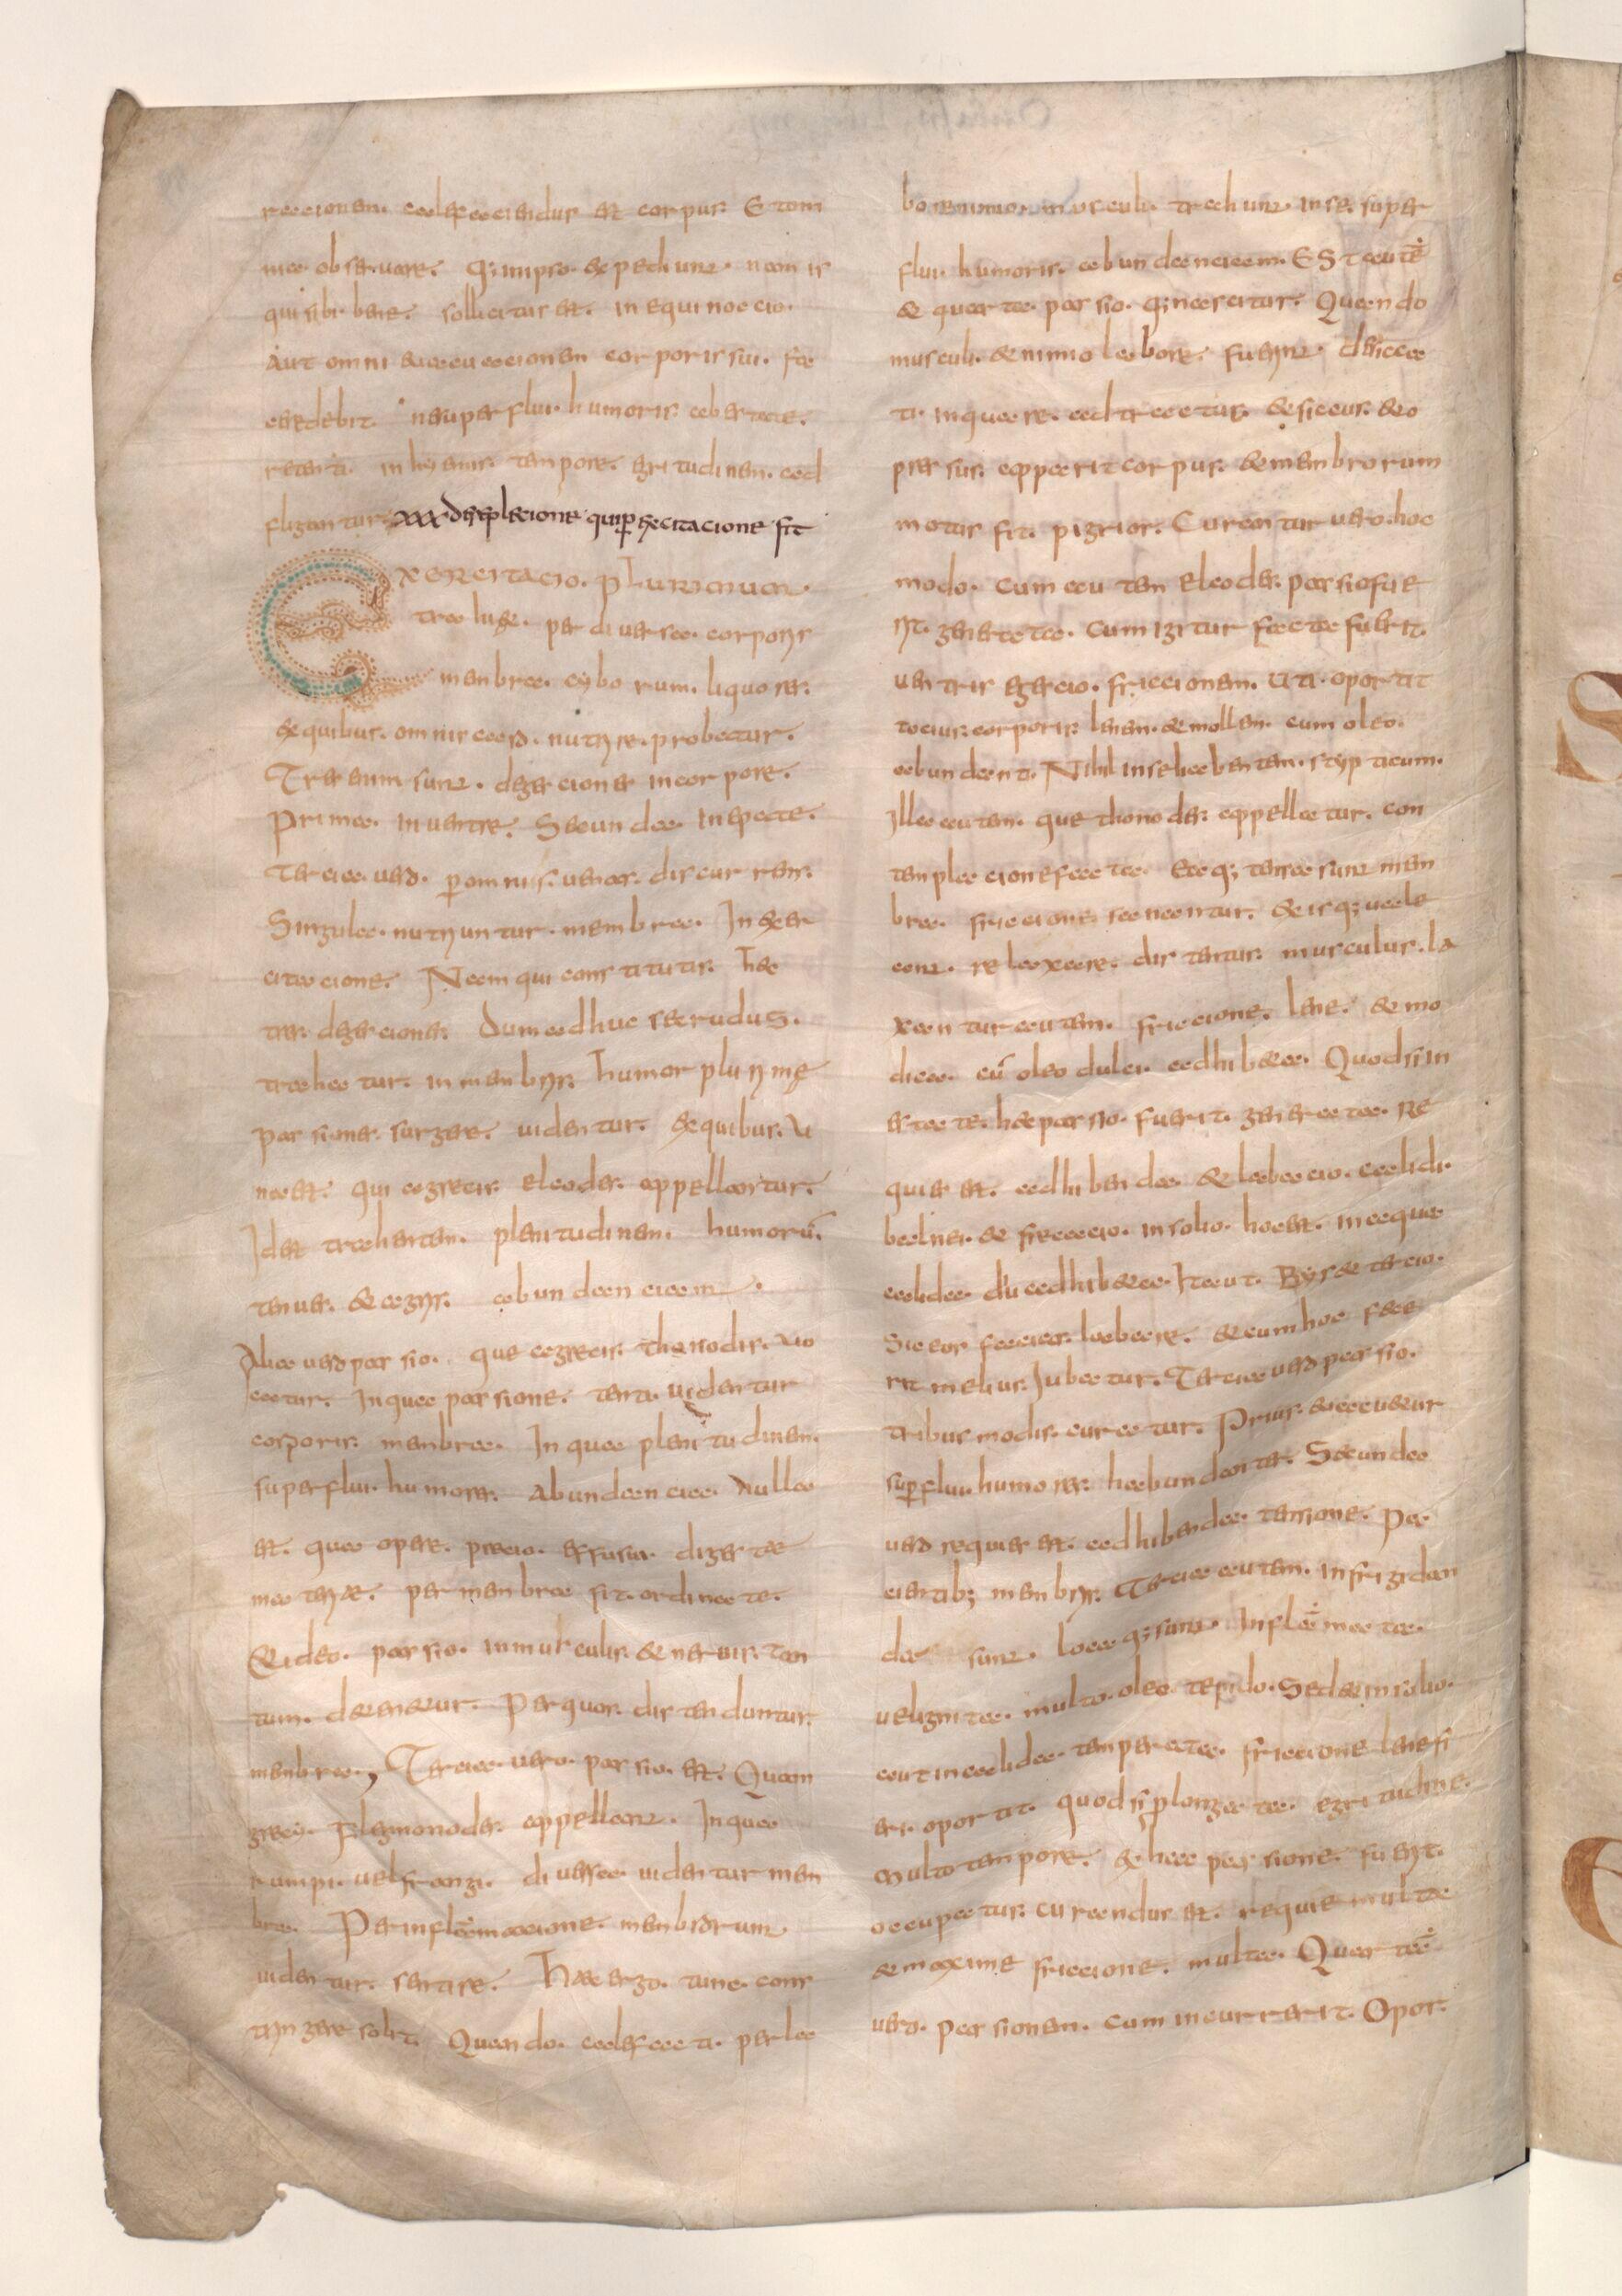 raccionem. calefaciendus est corpus. Et om
nia observare. q; inipso. expediunt nam is
qui sibi bene. sollicitus est. in equinoccio.
Aut omni evacuacionem corporis sui. fa
cere debit. ne superflui. humoris. abertate.
retenti. in hyemis. tempore. egritudinem. ad
fligantur. xxx de replecione qui per exercitacione fit
Exercitacio. plurima
trahuge. per diversa. corporis
menbra. cyborum. liquores.
ex quibus. omnis caro. nutrire. probatur.
Tres enim sunt. degeciones in corpore.
Prima. in ventre. Secunda. in epate.
Tercia. vero. per omnis. venas. discurrens.
Singula. nutriuntur. membra. In exer
citacione. Nam qui constitutis. hec
tres. degeciones. Dum adhuc secrudus.
trahatur. in menbris. humor plurime
passiones. surgere. videntur. ex quibus. u
na est. qui a grecis. elcodes. appellantur.
Id est trahentem. plenitudinem. humorū
tenues. & acris. abundanciam.
Alia vero passio. que a grecis. thenodis. vo
catur. In qua passione. tenti. videntur
corporis. menbra. In qua plenitudinem.
superflui. humores. Abundancia. nulla
est. qua opere. precio. effusa. digesta
materie. per menbra sit. ordinate.
Et ideo. passio. in musculis. & nervis. tan
tum. detenetur. Per quos. distenduntur.
menbra, Tercia. vero. passio. est. Quam
greci. flegmonodes. appellant. In qua
rumpi. vel frangi. diversa. videntur men
bra. Per inflammacione. menbrorum
videntur. sentire. Hec ergo. tunc. cons
tringere solit. Quando. calefacti. per la
bore nimio. musculi. trachunt. in se. super
flui. humoris. abundanciam. EST autē
& quarta. passio. q; nascitur. Quando
musculi. & nimio labore. fuerint. desicca
ti. in quaere. adtracatur. & siccus. & o
pressus. apparit corpus. & menbrorum
motus fit. pigrior. Curantur vero. hoc
modo. Cum autem elcodes. passio fue
rit. generata. Cum igitur facta fuerit.
ventris egecio. friccionem. uti. oportit
tocius. corporis lenem. & mollem. cum oleo.
abundanti. Nihil in se habentem. stypticum.
Illa autem. que thonodes. appellatur. con
templacione facta. ex q; tensa sunt mem
bra. friccione. sanantur. & is q; vale
ant. relaxare. distentus. musculus. la
xantur autem. friccione. lene. & mo
dica. cū oleo dulci. adhibeta. Quod si in
etate. hec passio. fuerit. generata. re
quies est. adhibenda & labacio. calidi.
balnei. & fricacio. in solio. hoc est. in aqua
calida. diu adhibeta. Ita ut. Bis & tercio.
Sic eos facias. labare. & cum hoc fece
rit melius. Iubatur. Tercia vero passio.
tribus modis. curatur. Prius. evacuetur
superflui. humores. habundantes. Secunda
vero requies est. adhibenda. tensione. Pa
cientib; menbris. Tercia autem. infrigidan
da sunt. loca q; sunt. Inflāmata.
vel ignita. multo. oleo. tepido. Sed & in solio.
aut in calida. temperata. friccione lene fi
eri. oportit. quod si plongata. egritudine.
Multo tempore. & hec passione. fuerit.
occupatur. curandus est. requie multa
& maxime friccione. multa. Quartā
vero. passionem. cum incurrerit. Opor.